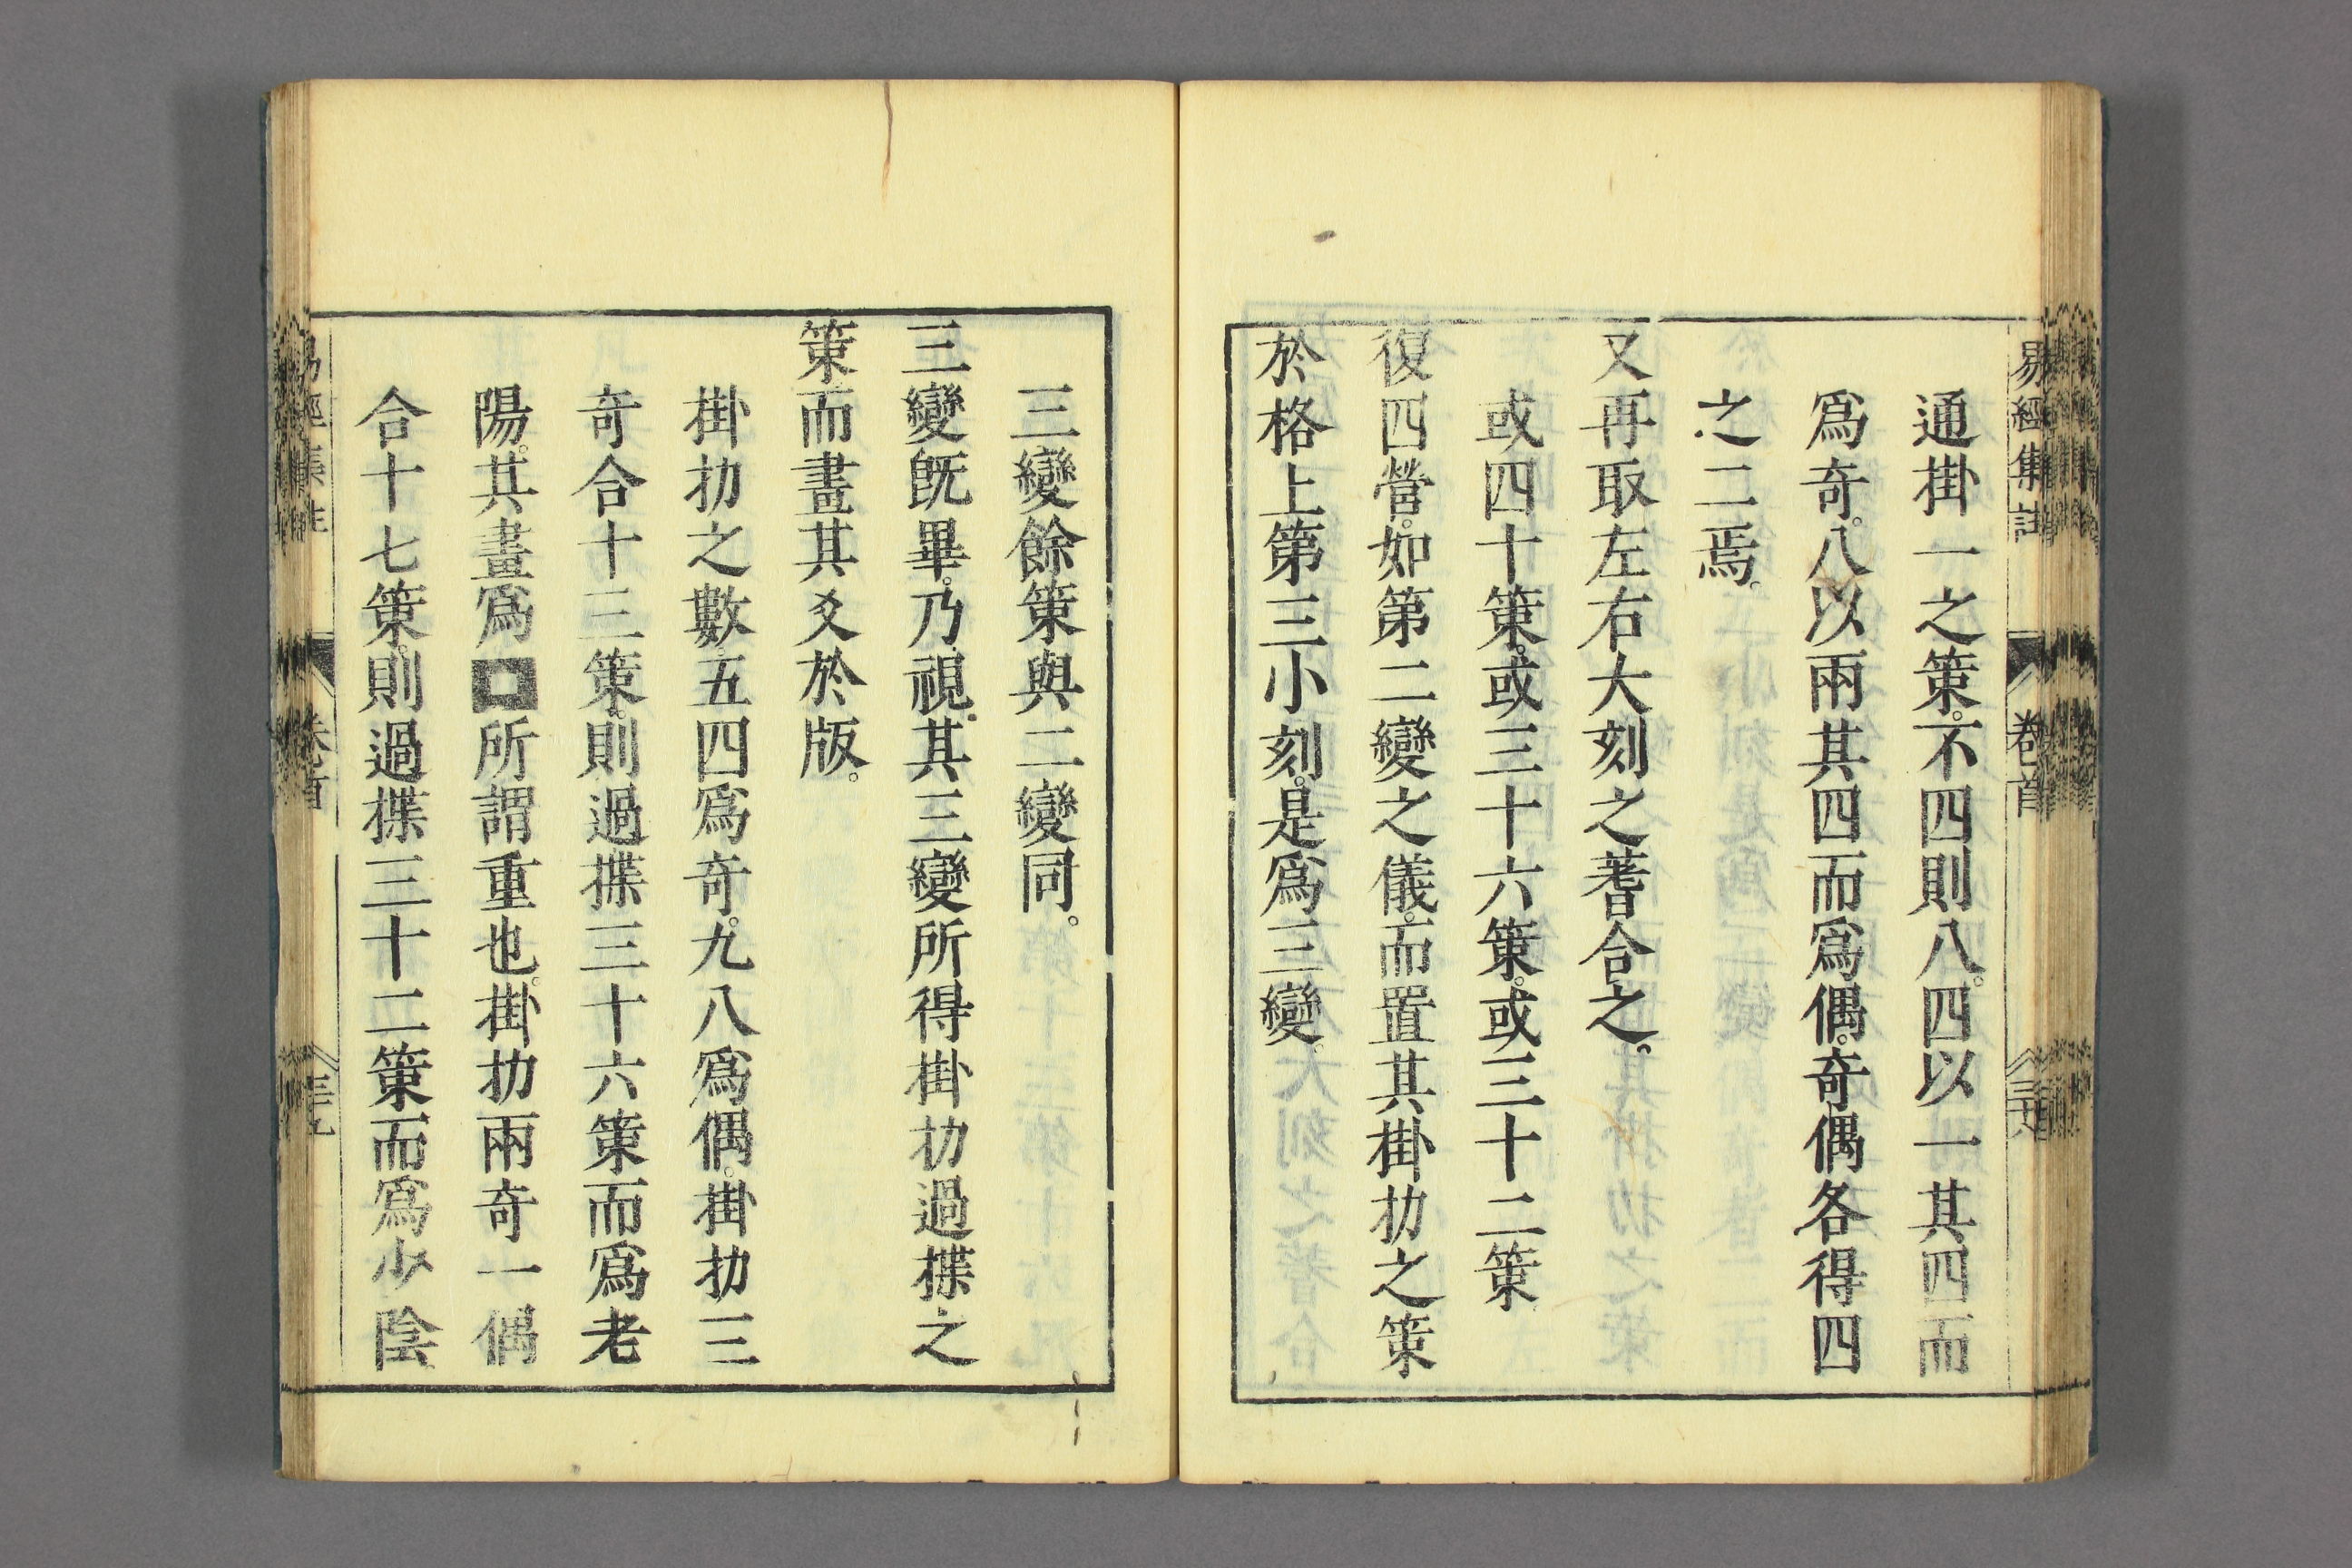 易經集註 卷首 三十八
通掛一之策。不四則八。四以一其四而
爲奇。八以兩其四而爲偶。奇偶各得四
之二焉。
又再取左右大刻之蓍合之。
或四十策。或三十六策。或三十二策
復四營。如第二變之儀。而置其掛扐之策
於格上第三小刻。是爲三變。
三變餘策與二變同。
三變既畢。乃視其三變所得掛扐過揲之
策而畫其爻於版。
掛扐之數五四爲奇。九八爲偶。掛扐三
奇合十三策。則過揲三十六策而爲老
陽。其畫爲□所謂重也。掛扐兩奇一偶
合十七策。則過揲三十二策而爲少陰
易經集註 卷首